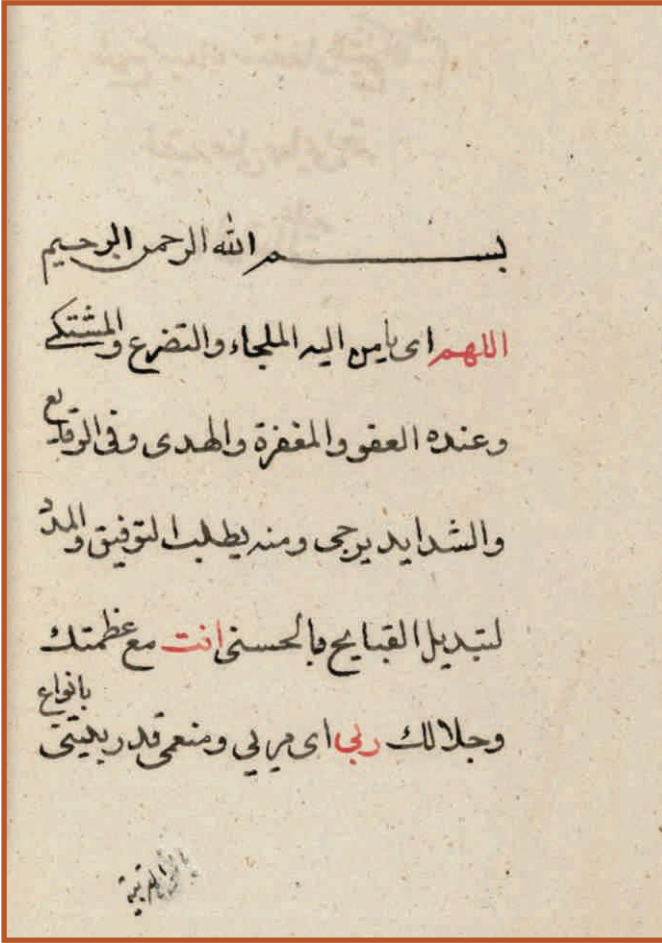 بسم الله الرحمن الرحيم
اللهم اى يا من اليه الملجاء والتضرع والمشتكى
وعنده العفو والمغفرة والهدى وفى الوقايع
والشدايد يرجى ومنه يطلب التوفيق والمدد
لتبديل القبايح بالحسنى انت مع عظمتك
وجلالك ربى اى مربى ومنعمى قد ربيتنى
بانواع